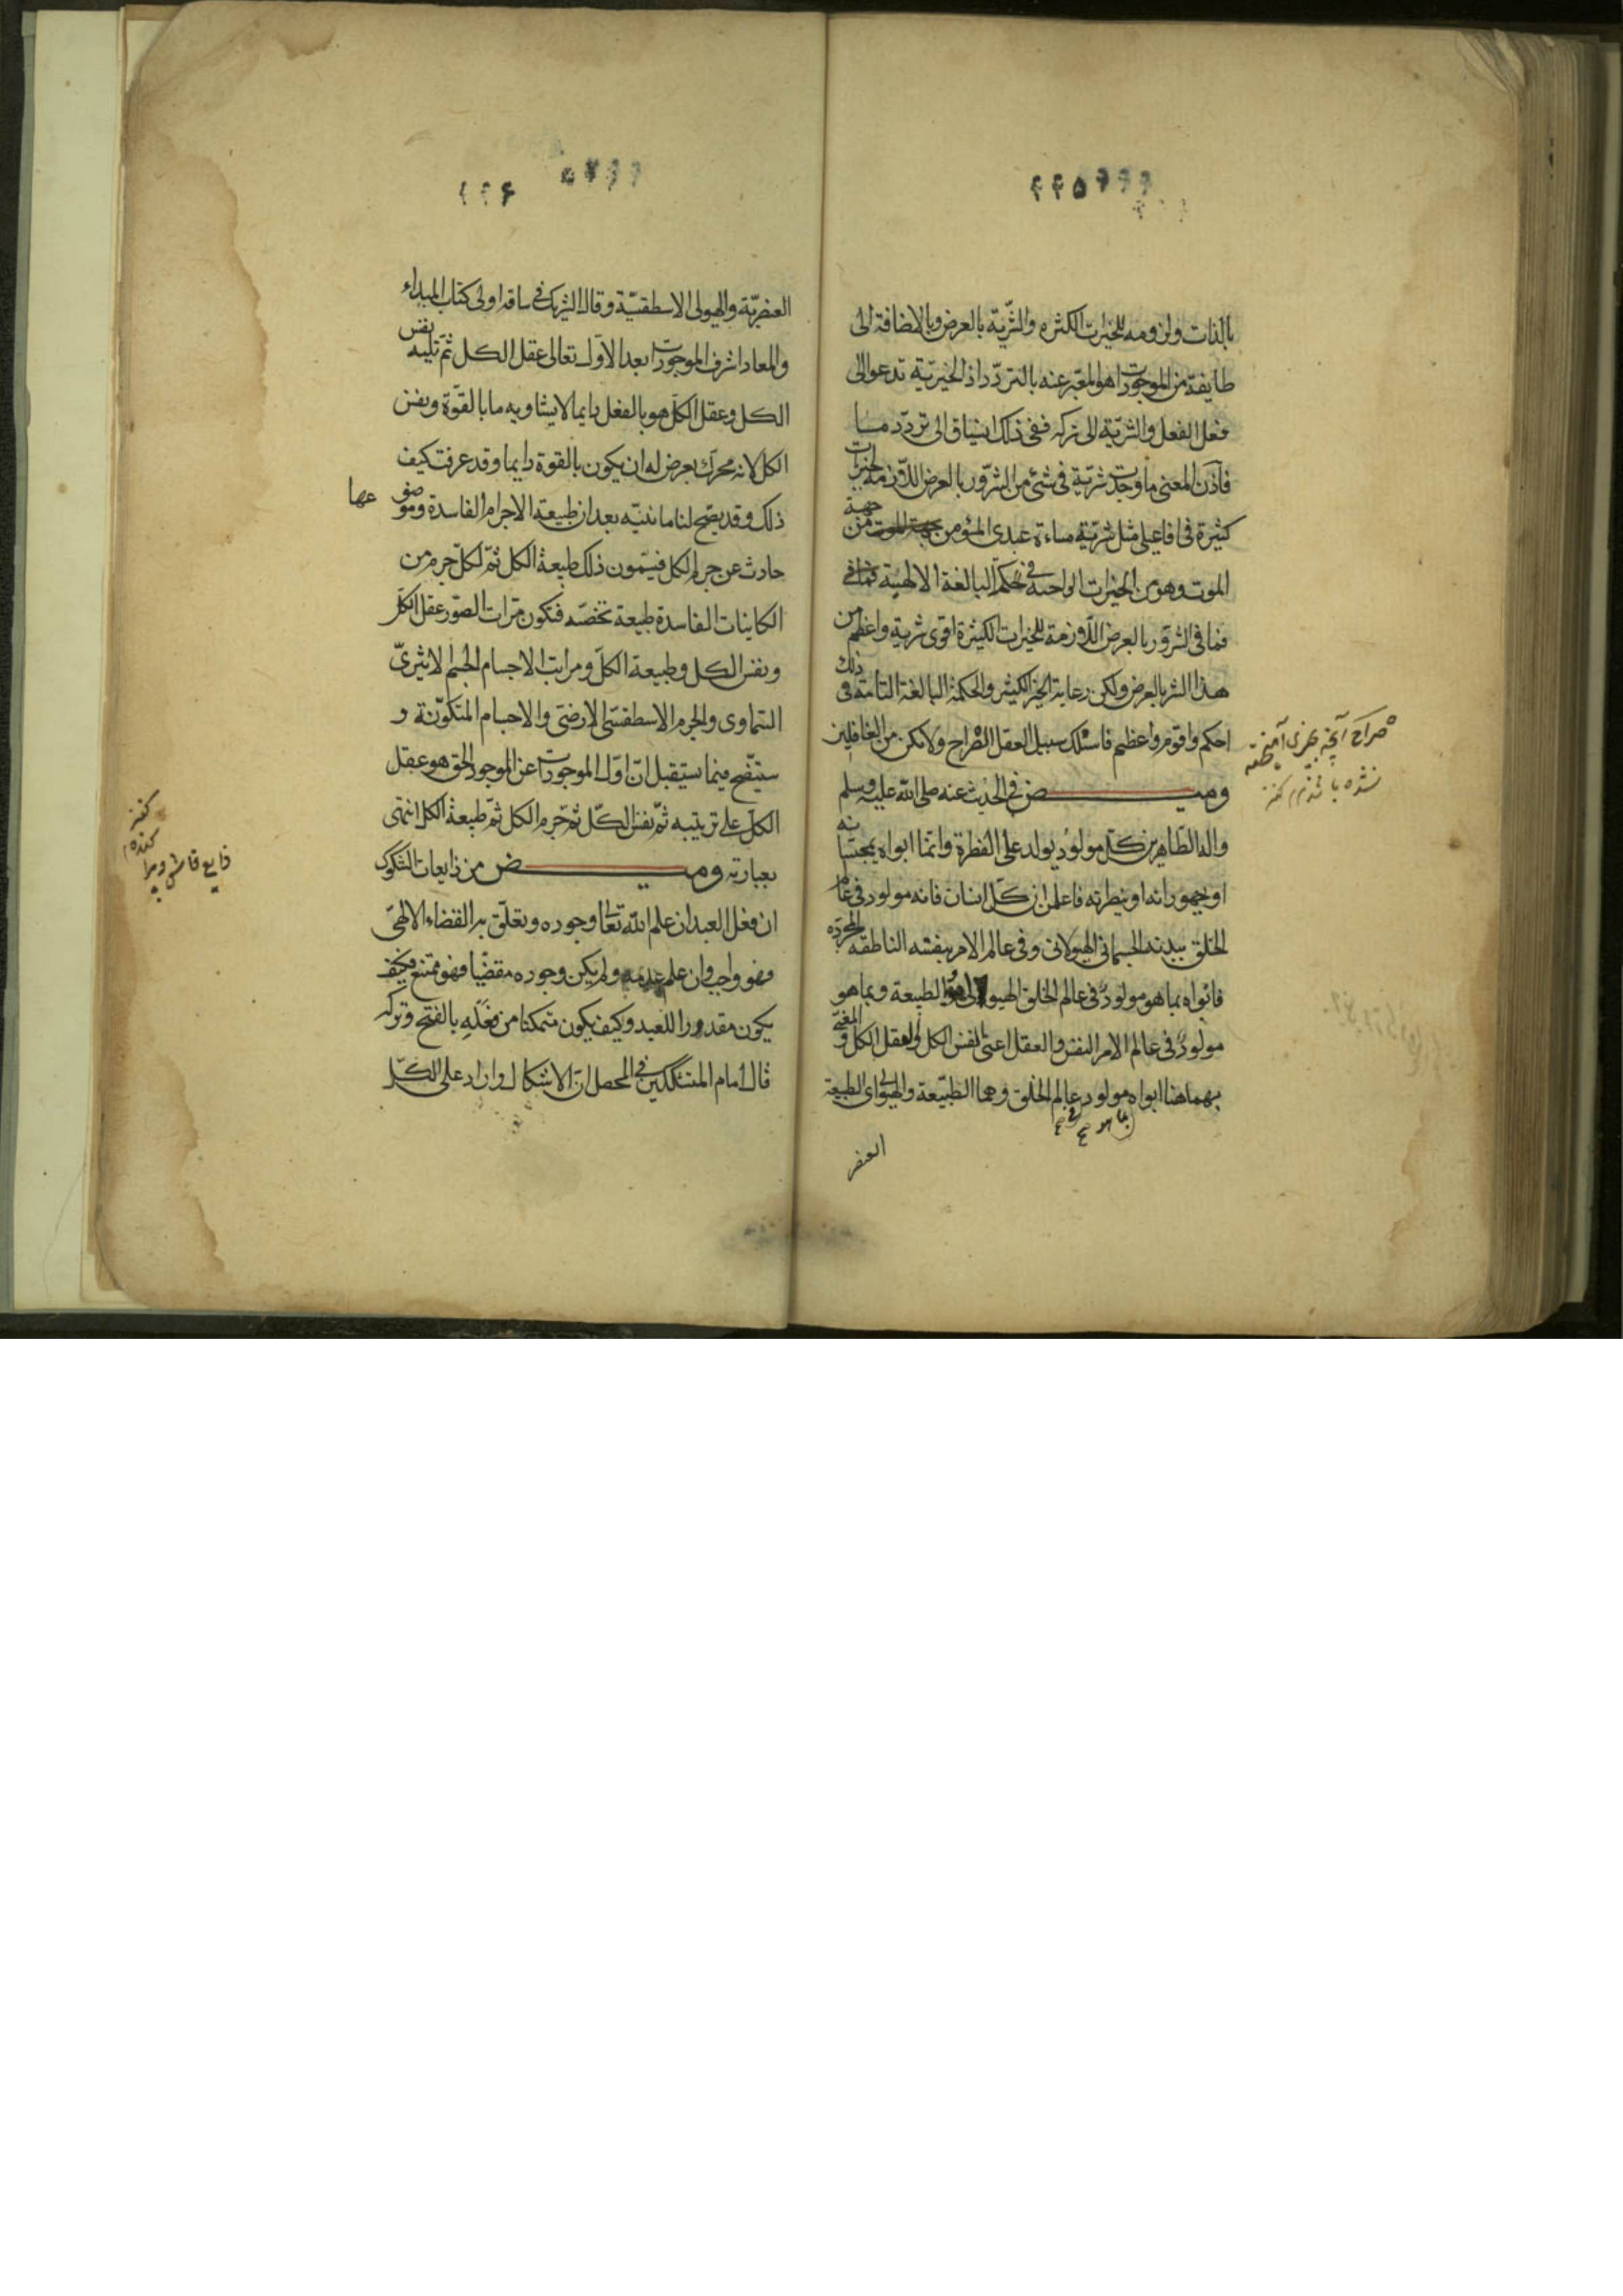 ۲۲۵
بالذات ولزومه للخيرات الكثيره والشرّيّة بالعرض وبالاضافة الى
طايفة من الموجودات هو المعبّر عنه بالتردّد اذ الخيريّة تدعو الى
فعل الفعل والشريّة الى تركه ففى ذلك انسياق الى تردّد مــا
فاذن المعنى ما وجدت شريّة فى شئ من الشرور بالعرض اللازمة لخيرات
كثيرة فى افاعيلى مثل شريّة مساءة عبدى المؤمن من جهة
الموت وهو من الخيرات الواجبة فى الحكمة البالغة الالهيّة
فما فى الشرور بالعرض اللازمة للخيرات الكثيرة اقوى شرية واعظم من
هذا الشر بالعرض ولكن رعاية الخير الكثير والحكمة البالغة التامة فى ذلك
احكم واقوم واعظم فاستلك سبيل العقل الصراح ولا تكن من الغافلين
وميــــض فى الحديث عنه صلى الله عليه وسلم
واله الطاهرين كلّ مولود يولد على الفطرة وانّما ابواه يمجسانه
او يهودانه او ينصرانه فاعلمن ان كلّ انسان فانه مولود فى عالم
الخلق ببدنه الجسمانى الهيولانى وفى عالم الامر بنفسه الناطقه المجرّده
فابواه بما هو مولود فى عالم الخلق الهيولى والطبيعة وبما هو
مولود فى عالم الامر النفس والعقل اعنى النفس الكل والعقل الكل و
بهما هنا ابواه مولود عالم الخلق وهما الطبيعة والهيولى اى الطبيعة
بما هو فى
العنصر
صراح آنچه بچیزی آمیخته
نشده باشد
۲۲۶
العنصريّة والهيولى الاسطقسيّة وقال الشريك فى ساقة اولى كتاب المبداء
والمعاد اشرف الموجودات بعد الاوّل تعالى عقل الكل ثمّ تليه نفس
الكل وعقل الكلّ هو بالفعل دايما لا يشاوبه ما بالقوّة ونفس
الكل لانه محرك يعرض له ان يكون بالقوة دايما وقد عرفت كيف
ذلك وقد يتضح لنا ما نبيّنه بعد ان طبيعة الاجرام الفاسدة وموضوعها
حادث عن جرم الكل فيسمّون ذلك طبيعة الكل ثمّ لكلّ جرم من
الكاينات الفاسدة طبيعة تخصّه فتكون مراتب الصور عقل الكلّ
ونفس الكل وطبيعة الكلّ ومراتب الاجسام الجسم الاثيرىّ
السّماوى والجرم الاسطقسّى الارضى والاجسام المتكوّنة و
سيتّضح فيما يستقبل انّ اوّل الموجودات عن الموجود الحق هو عقل
الكلّ على ترتيبه ثمّ نفس الكلّ ثم جرم الكل ثمّ طبيعة الكل انتهى
بعبارته وميــــض من ذايعات الشكوك
ان فعل العبد ان علم الله تعالى وجوده وتعلّق به القضاء الالهىّ
فهو واجب وان علم عدمه ولم يكن وجوده مقضيّا فهو ممتنع فكيف
يكون مقدورا للعبد وكيف يكون متمكنا من فعله بالفتح وتركه
قال امام المتشككين فى المحصل انّ الاشكال وارد على الكلّ
ذايع فاش